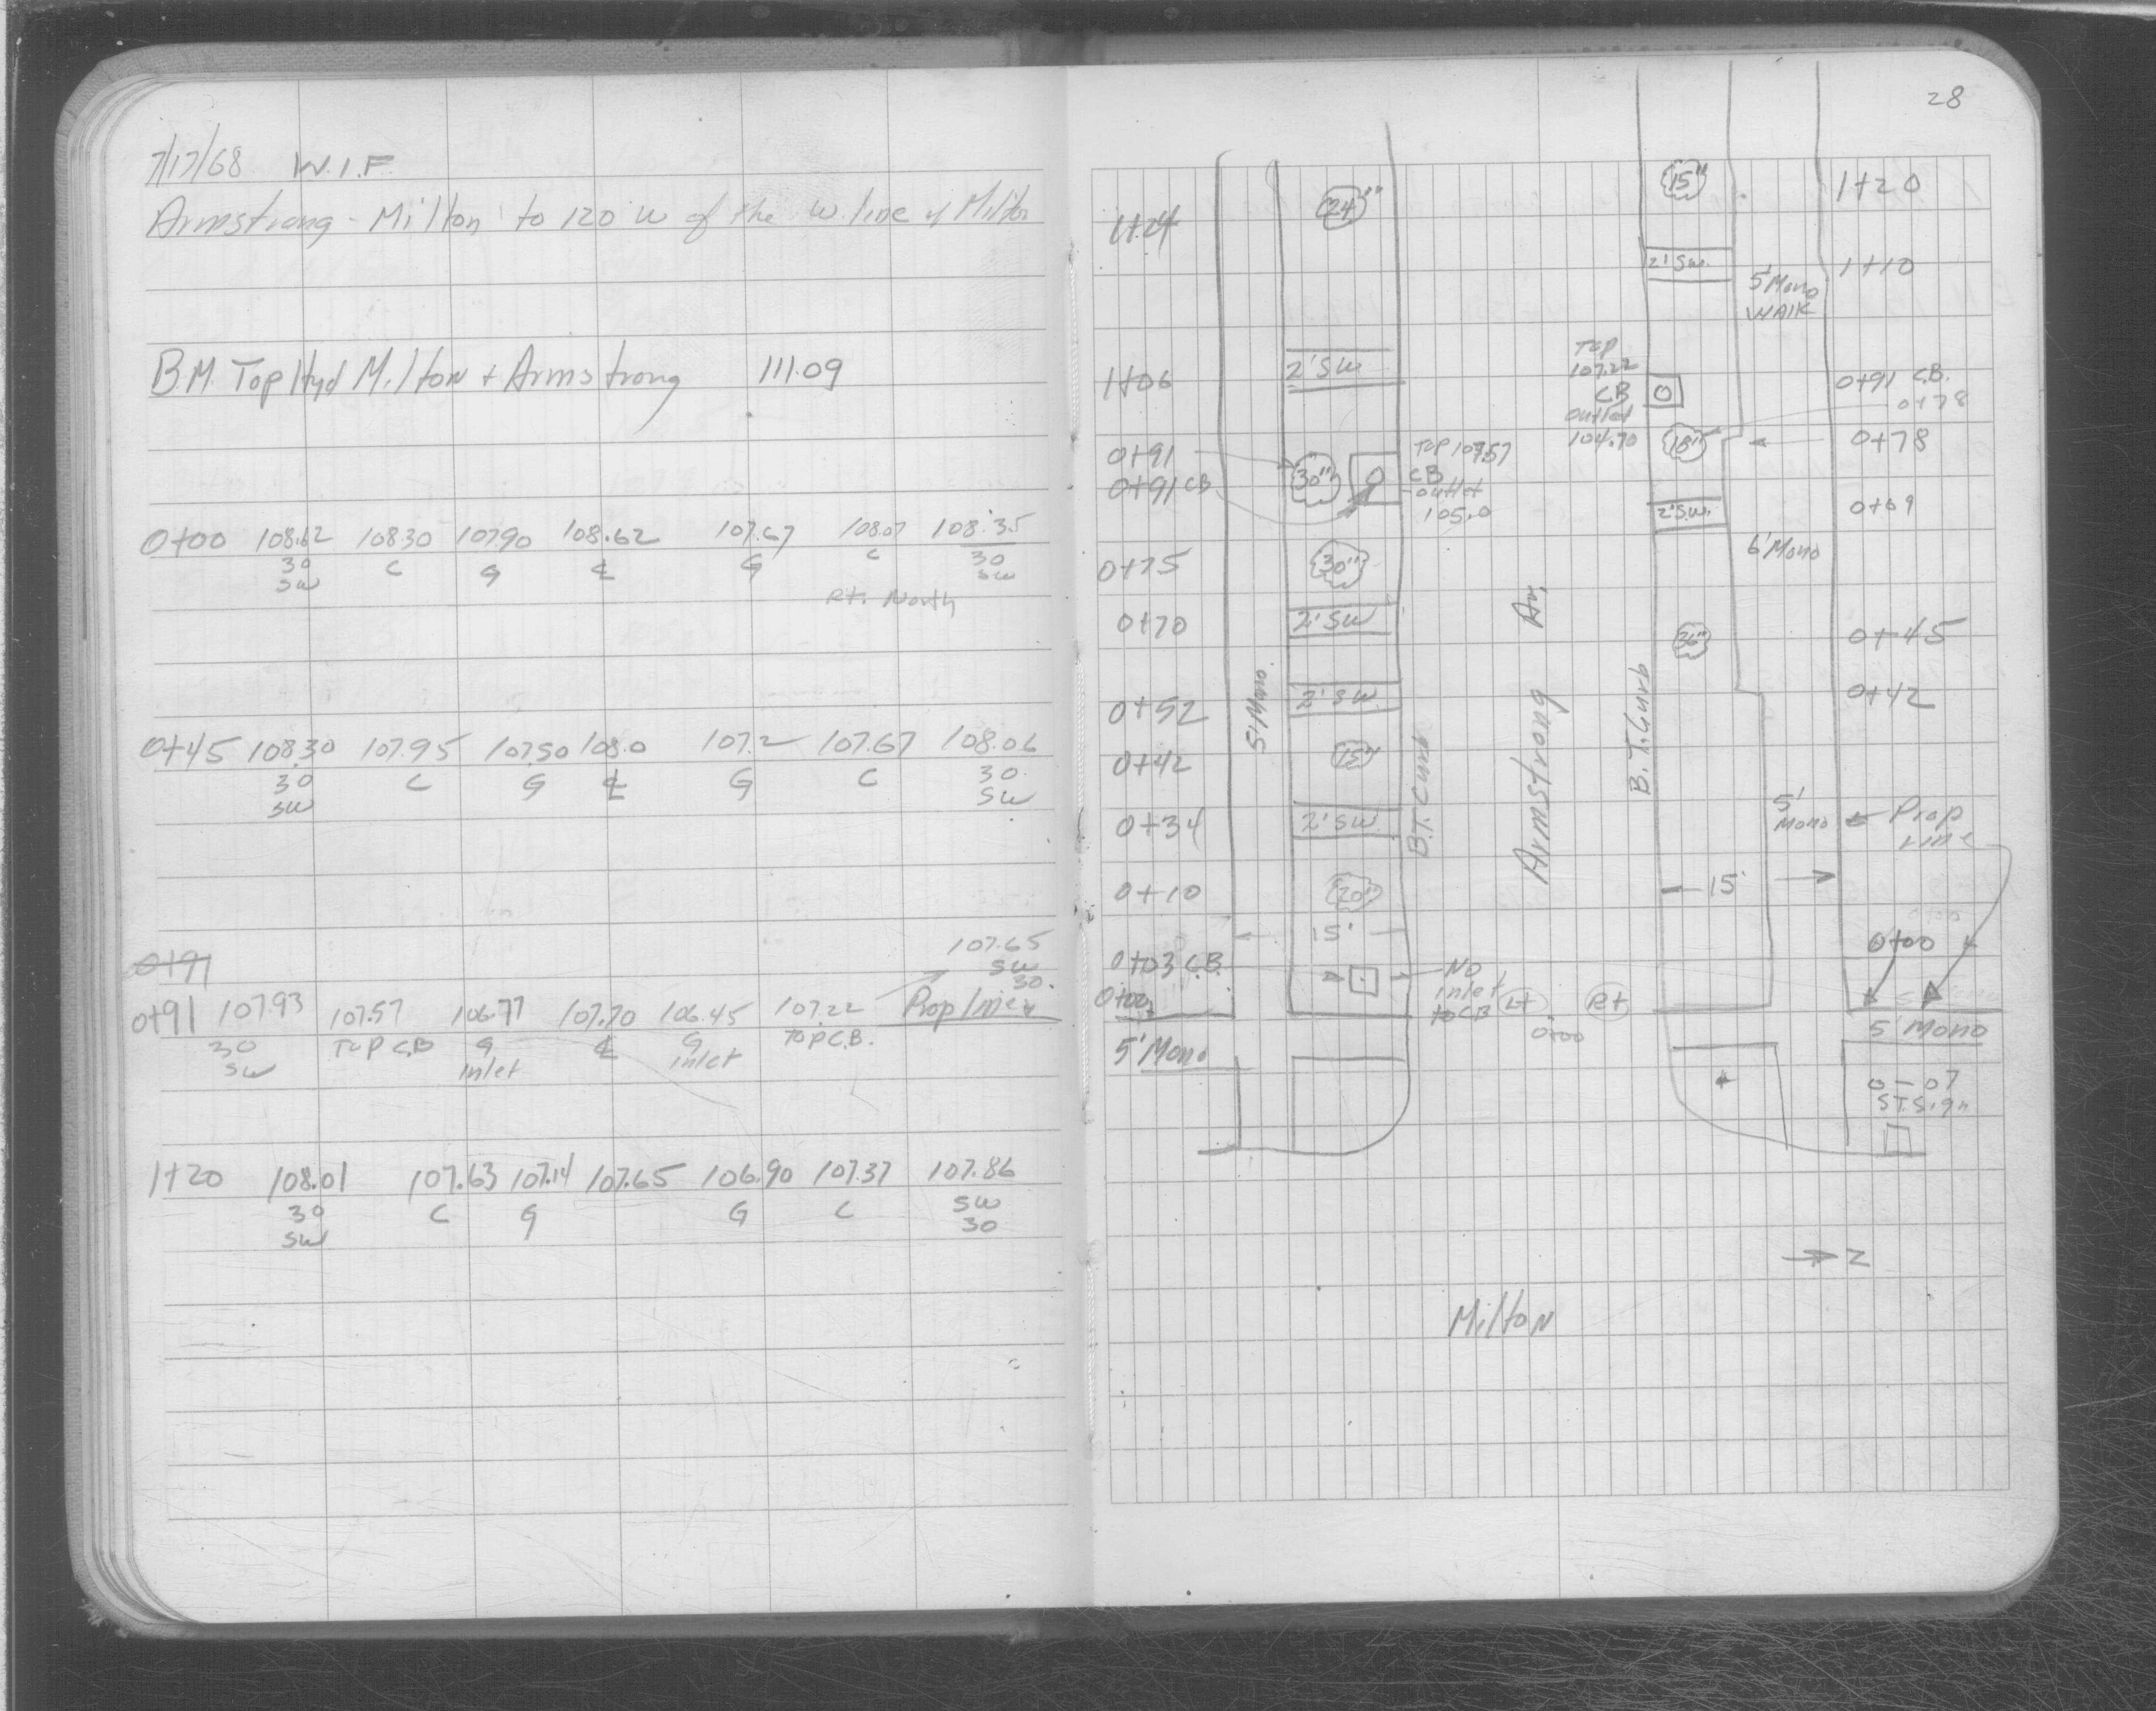 7/17/68 W.I.F.
Armstrong - Milton to 120 W of the W. line of Milton
B.M. Top Hyd Milton + Armstrong 111.09
0+00 108.62 108.30 107.90 108.62 107.67 108.07 108.35
30 C G ℄ G C 30
SW SW
Rt. North
0+45 108.30 107.95 107.50 108.0 107.2 107.67 108.06
30 C G ℄ G C 30
SW SW
0+91
107.65
SW
30.
0+91 107.93 107.57 106.77 107.70 106.45 107.22 Prop line
30 TOP C.B G ℄ G TOP C.B.
SW inlet inlet
1+20 108.01 107.63 107.14 107.65 106.90 107.37 107.86
30 C G G C SW
SW 30
28
1+24
24"
1+06
2' SW
0+91
30"
0+91 CB
TOP 107.57
CB
outlet
105.0
0+75
30"
0+70
2' SW
0+52
2' SW.
0+42
15"
0+34
2' SW.
0+10
20"
15'
0+03 C.B.
0+00
NO
inlet
to CB
5' Mono
5' Mono.
B.T. Curb
Armstrong Av.
Lt
Rt
0+00
B.T. Curb
15"
1+20
2' SW.
1+10
5' Mono
WALK
TOP
107.22
CB
outlet
104.70
0+91 C.B.
0+78
18"
0+78
2' S.W.
0+69
6' Mono
36"
0+45
0+42
5'
Mono
Prop
Line
15'
0+00
5' Mono
0-07
ST. Sign
Z
Milton